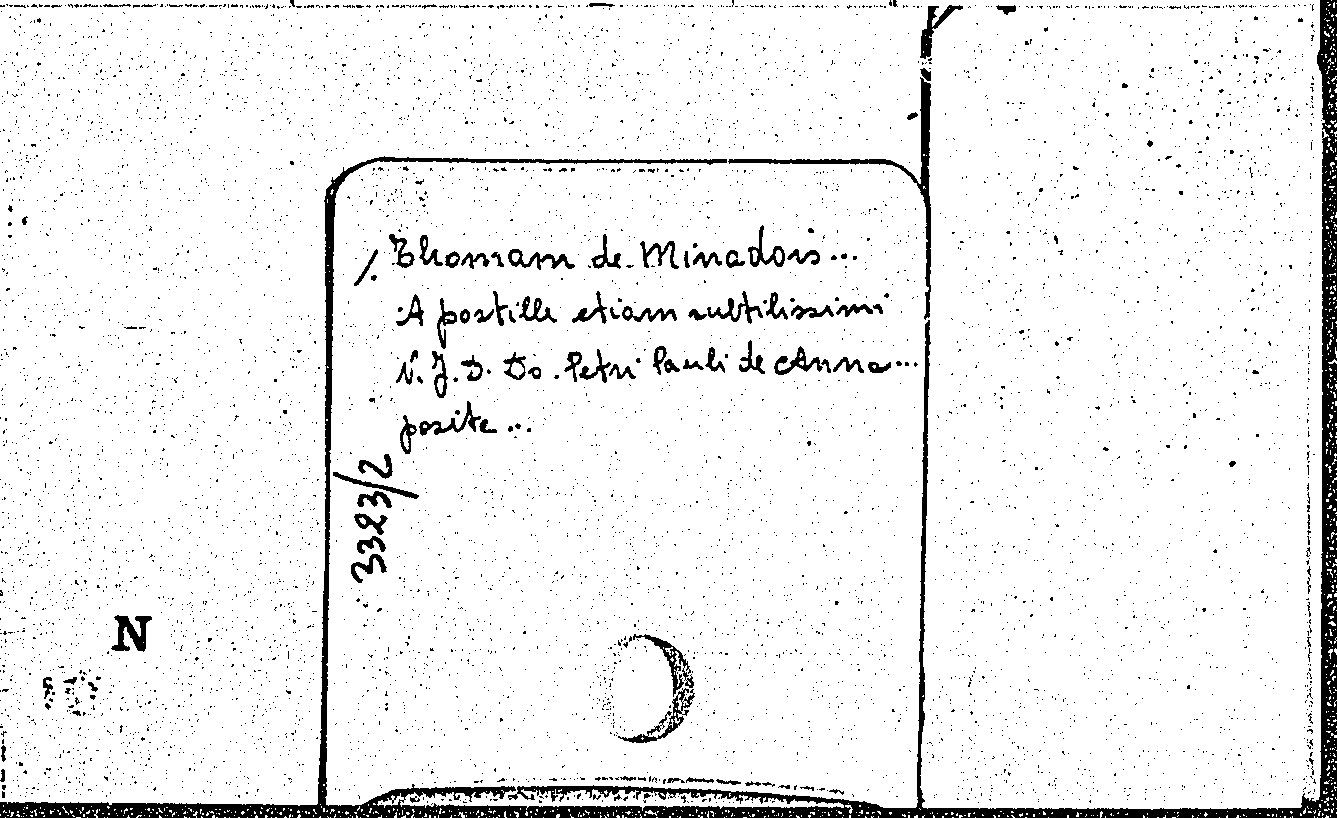 /. Thomam de Minadois...
Apostille etiam subtilissimi
V. J. D. Do. Petri Pauli de Anna...
posite...
3323/2
N